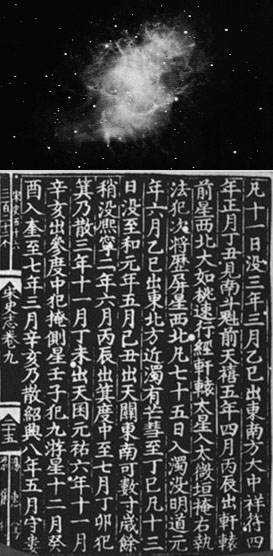 凡十一日没三年三月乙巳出東南方大中祥符四
年正月丁丑見南斗魁前天禧五年四月丙辰出軒轅
前星西北大如桃速行經軒轅太星入太微垣掩右執
法犯次將歷屏星西北凡七十五日入濁没明道元
年六月乙巳出東北方近濁有芒彗至丁巳凡十三
日没至和元年五月己丑出天關東南可數寸歲餘
稍没熙寧二年六月丙辰出箕度中至七月丁卯犯
箕乃散三年十一月丁未出天囷元祐六年十一月
辛亥出參度中犯掩側星壬子犯九斿星十二月癸
酉入奎至七年三月辛亥乃散紹興八年五月守婁
宋史志卷九